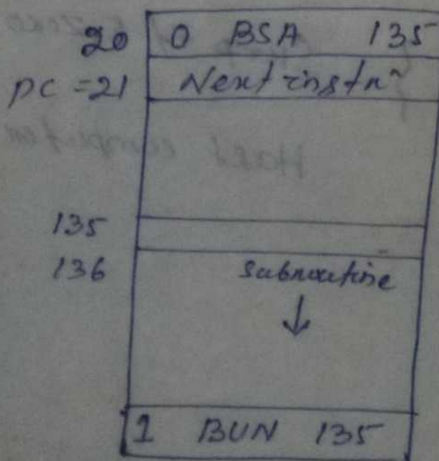 20 0 BSA 135
PC = 21 Next instn
135
136 subroutine
↓
1 BUN 135